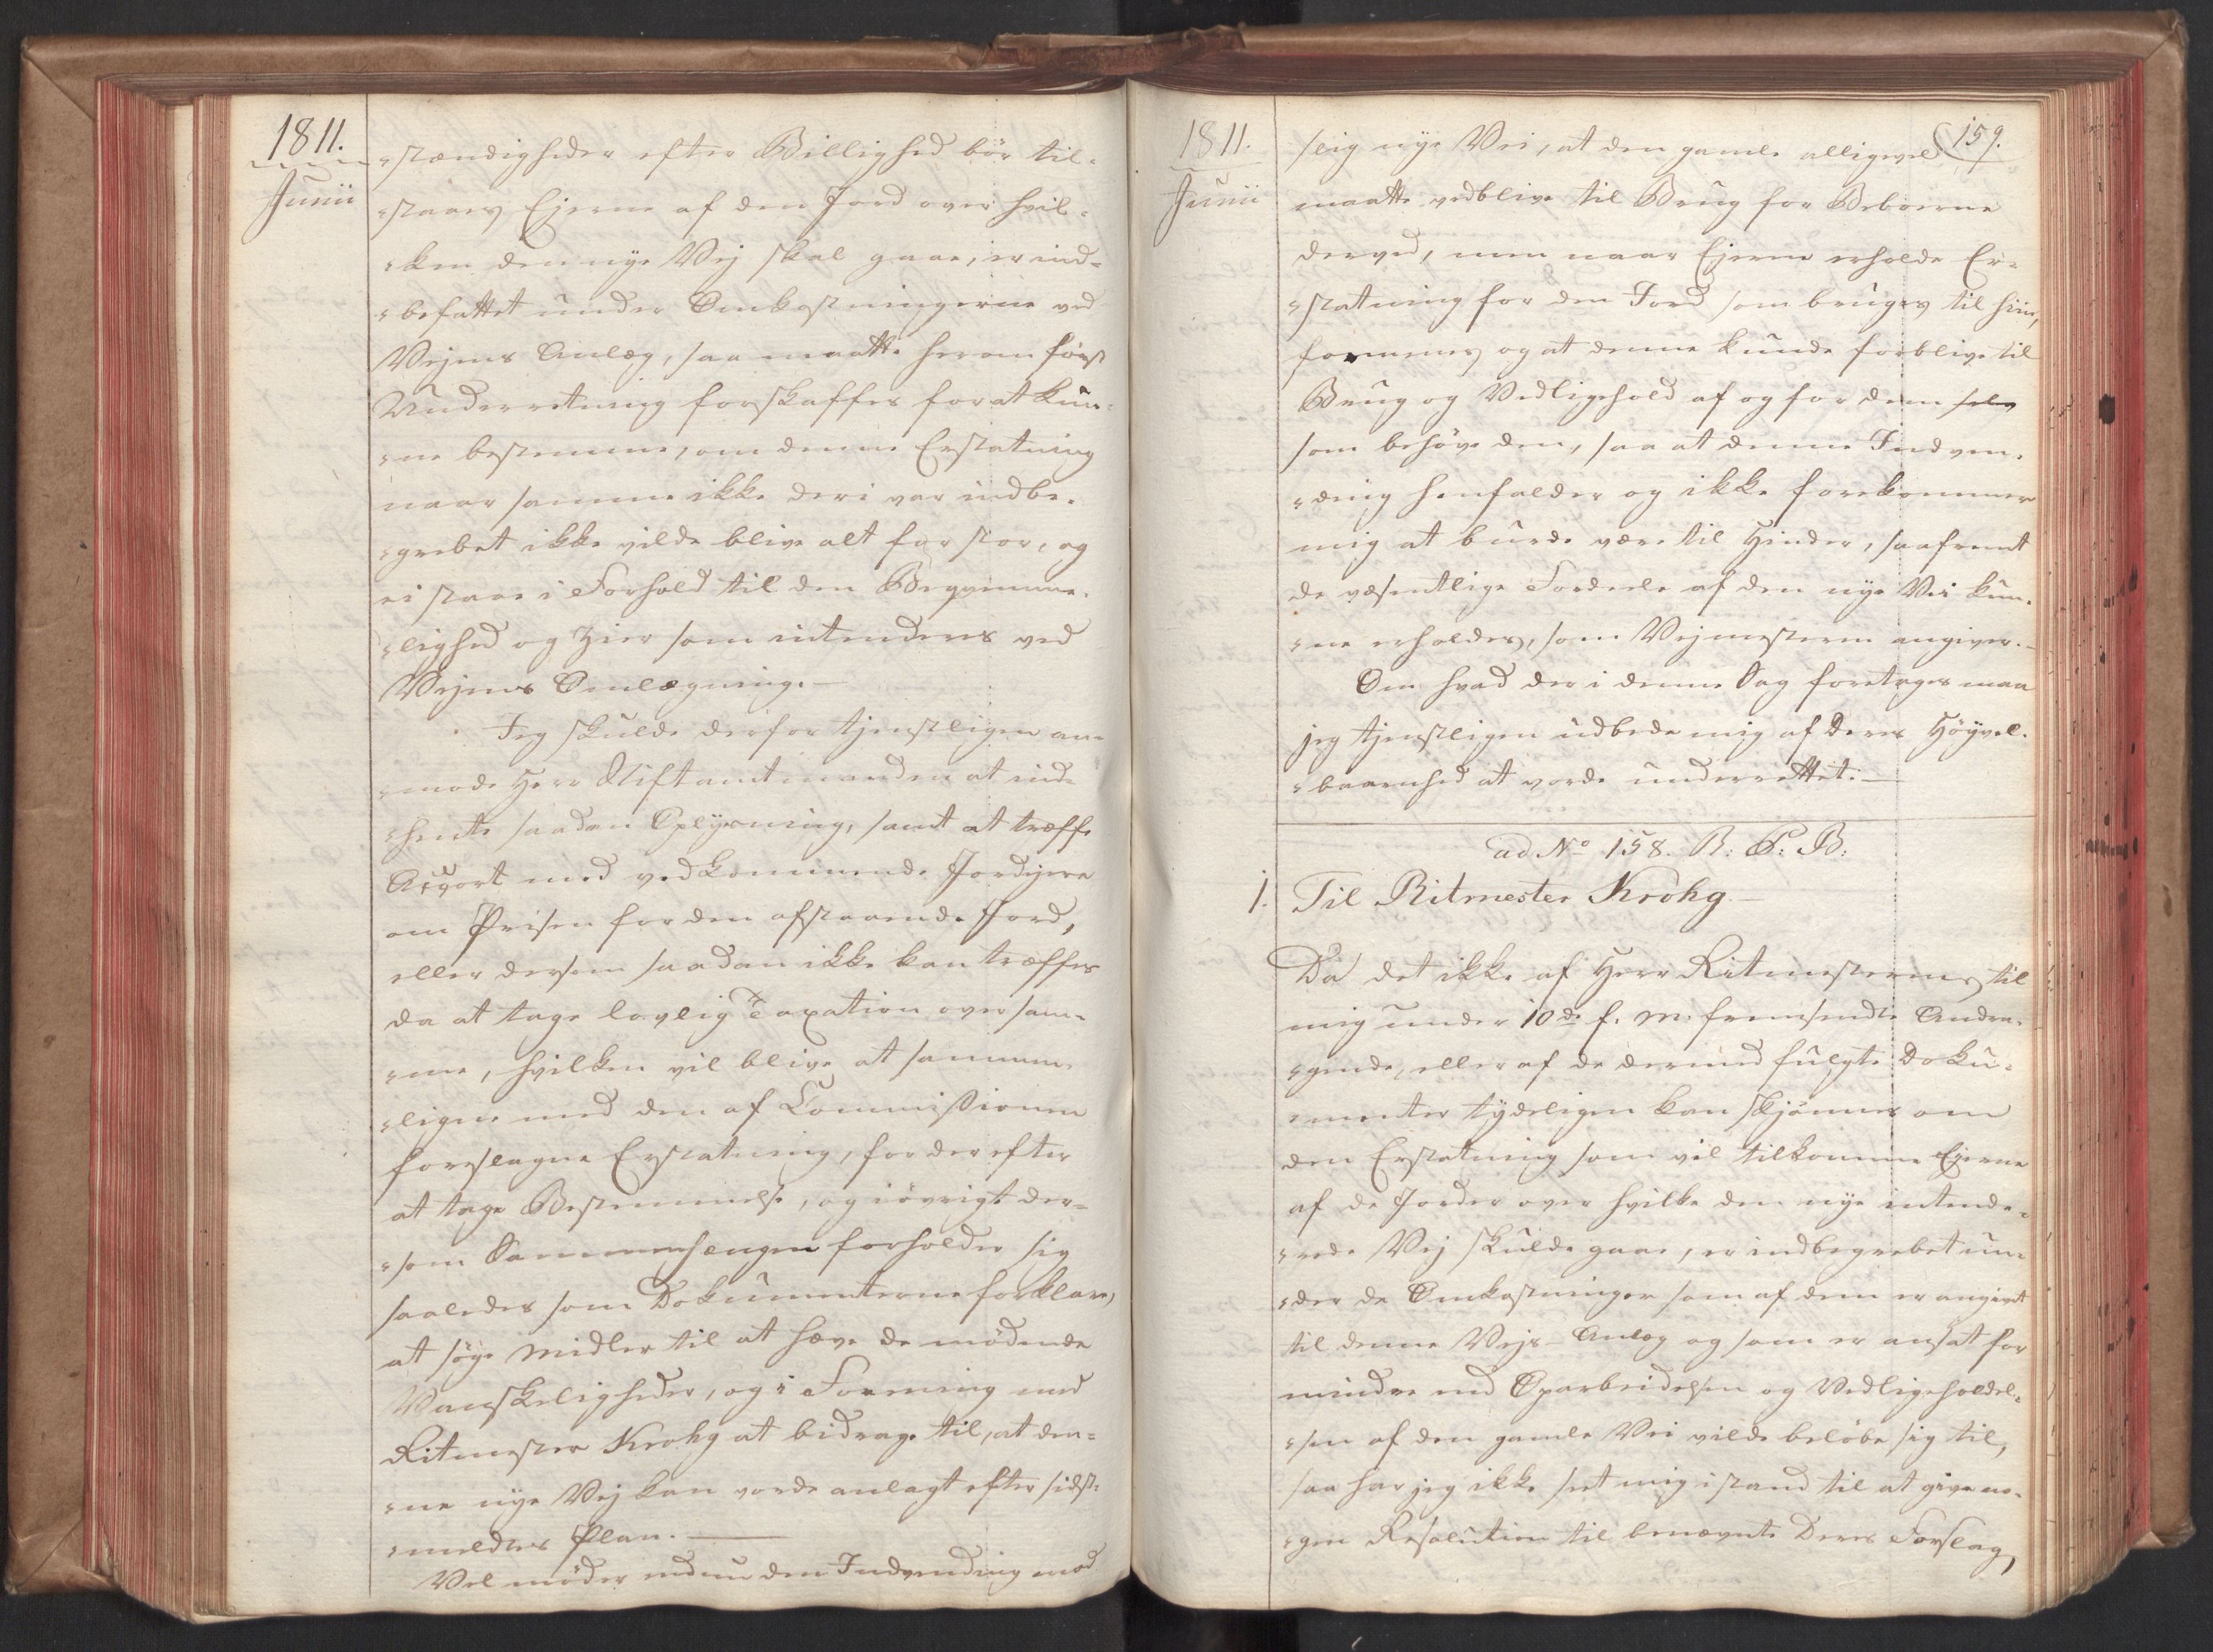 1811.
Junii
„stændigheder efter Billighed bör til„
„staaes Ejerne af den Jord over hvil„
„ken den nye Vej skal gaae, er ind„
„befattet under Omkostningerne ved
Vejens Anlæg, saa maatte herom först
Underretning forskaffes for at kun„
„ne bestemme, om denne Erstatning
naar samme ikke deri var indbe„
„grebet ikke vilde blive alt for stor, og
ei staae i Forhold til den Beqvemme„
„lighed og Zier som intenderes ved
Vejens Omlægning.—
Jeg skulde derfor tjenstligen an„
„mode Herr Stiftamtmanden at ind„
„hente saadan Oplysning, samt at træffe
Accort med vedkommende Jordejere
om Prisen for den afstaaende Jord,
eller dersom saadan ikke kan træffes
da at tage lovlig Taxation over sam„
„me, hvilken vil blive at sammen„
„ligne med den af Commissionen
foreslagne Erstatning, for derefter
at tage Bestemmelse, og iövrigt der„
„som Sammenhængen forholder sig
saaledes som Dokumenterne forklare,
at söge Midler til at hæve de mödende
Vanskeligheder, og i Forening med
Ritmester Krohg at bidrage til, at den„
„ne nye Vej kan vorde anlagt efter sidst„
„meldtes Plan.—
Vel möder endnu den Indvending mod
1811.
Junii
159.
slig nye Vei, at den gamle alligevel
maatte vedblive til Brug for Beboerne
derved, men naar Ejerne erholde Er„
„statning for den Jord som bruges til hiin,
formenes og at denne kunde forblive til
Brug og Vedligehold af og for dem selv
som behöve den, saa at denne Indven„
„ding henfalder og ikke forekommer
mig at burde være til Hinder, saafremt
de væsentlige Fordeele af den nye Vei kun„
„ne erholdes, som Vejmesteren angiver.—
Om hvad der i denne Sag foretages maa
jeg tjenstligen udbede mig af Deres Höyvel„
„baarnhed at vorde underrettet.—
ad No 158. R: P: B:
1. Til Ritmester Krohg—
Da det ikke af Herr Ritmesterens til
mig under 10de f. M. fremsendte Andra„
„gende, eller af de dermed fulgte Doku„
„menter tydeligen kan skjönnes om
den Erstatning som vil tilkomme Ejerne
af de Jorder over hvilke den nye intende„
„rede Vej skulde gaae, er indbegrebet un„
„der de Omkostninger som af dem er angivet
til denne Vejs-Anlæg og som er ansat for
mindre end Oparbeidelsen og Vedligeholdel„
„sen af den gamle Vei vilde belöbe sig til,
saa har jeg ikke seet mig istand til at give no„
„gen Resolution til benævnte Deres Forslag,